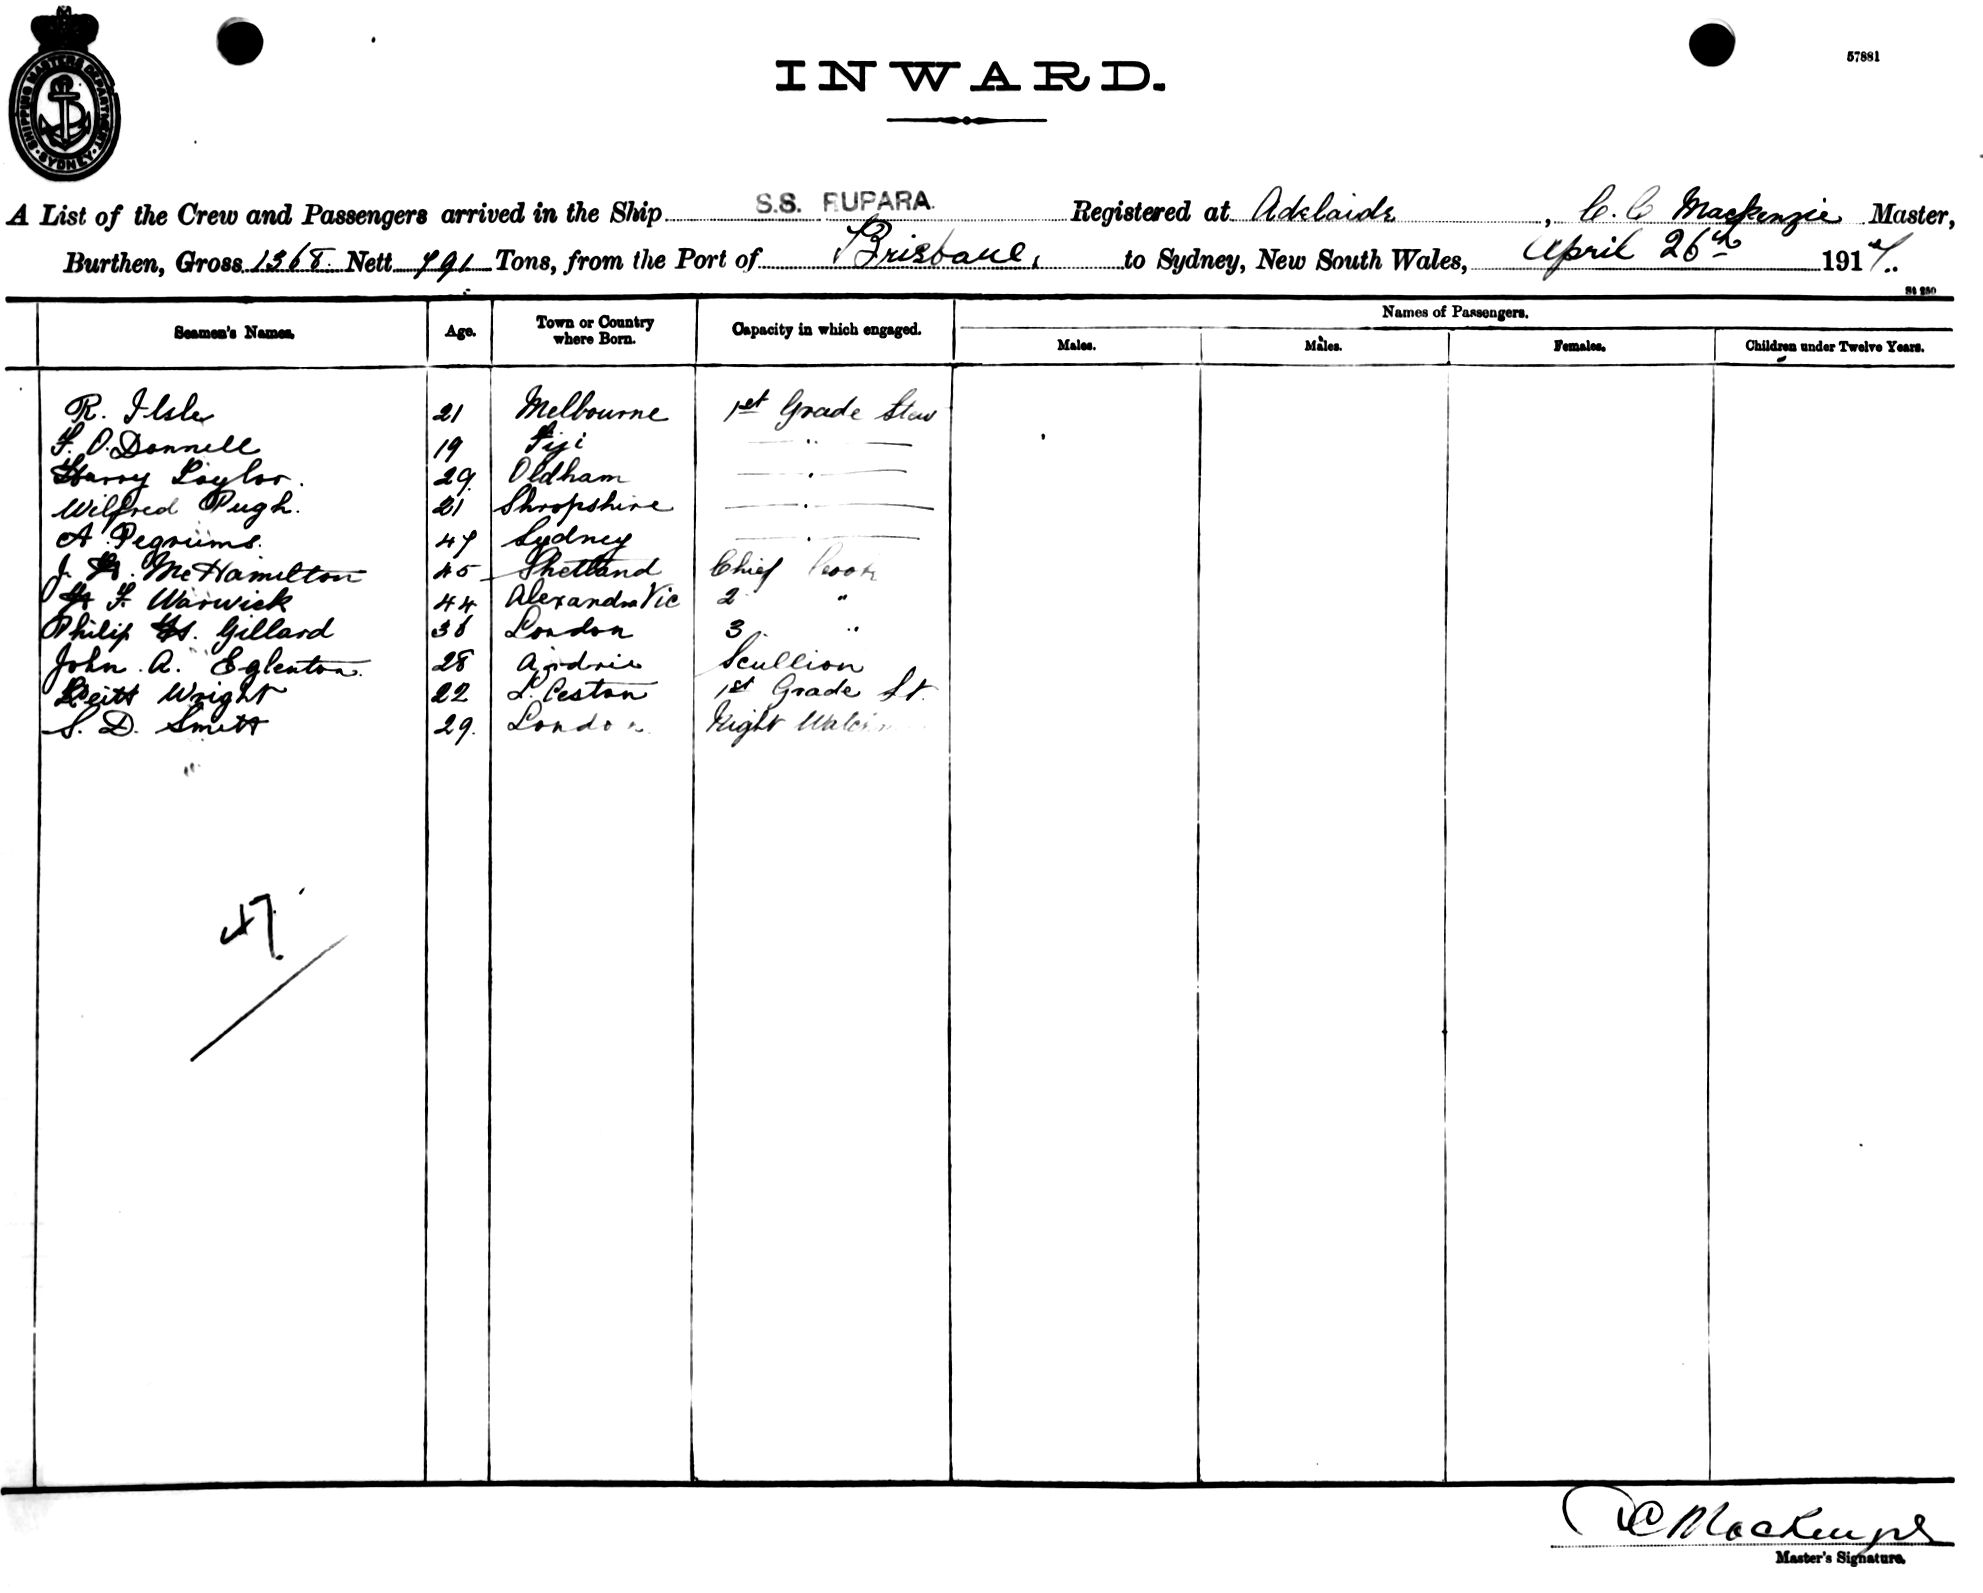 57881
SHIPPING MASTERS DEPARTMENT SYDNEY
INWARD.
A List of the Crew and Passengers arrived in the Ship S.S. RUPARA Registered at Adelaide, C. C Mackenzie Master,
Burthen, Gross 1368 Nett 791 Tons, from the Port of Brisbane, to Sydney, New South Wales, April 26th 1917.
St 280
Seamen's Names. Age. Town or Country where Born. Capacity in which engaged. Names of Passengers.
Males. Males. Females. Children under Twelve Years.
R. Ilsley 21 Melbourne 1st Grade Stew
F. O.Donnell 19 Fiji "
Harry Taylor. 29 Oldham "
Wilfred Pugh. 21 Shropshire "
A. Pegrums. 47 Sydney "
J. McHamilton 45 Shetland Chief Cook
F. Warwick 44 Alexandra Vic 2 "
Philip H. Gillard 38 London 3 "
John A. Eglenton. 28 Airdrie Scullion
Keith Wright 22 L. Ceston 1st Grade St.
S. D. Smith 29. London Night
47.
Master's Signature.